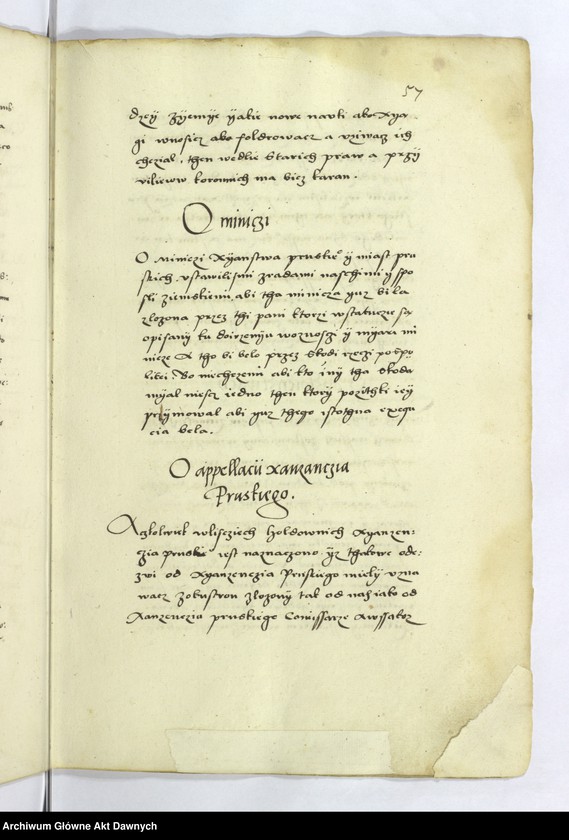 57
dzey zyemye yakie nowe nauki abo xya
gi wnosicz abo foldrowacz a vziwacz ich
chczial, then wedlie Starich praw a przy
vilieiow koronnich ma bicz karan.
O miniczi
O Miniczi Xyanstwa pruskie° y miast pru
skich, vstawilismi zradami naschimi y sspo
sli ziemskiemi, abi tha minicza yuz bila
zlozona przez thi pani ktorzi wstatucie są
opisany ku doirzeniu woznosczi y myari mi
nicze A tho bi belo przez Skodi rzeczi pospo
litei. Bo niechczemi abi kto iny tha Skoda
myal niescz iedno then ktory pozithki iey
przymowal abi yuz thego istothna exequ
cia bela.
O appellacii xanzanczia
Pruskiego.
Aczkolwiek wlisciech holdownich Xyanzen-
czia pruskie iest naznaczono yz thakowe ode-
zwi od Xyanzenczia Pruskiego miely vzna
wacz zobustron zlozony tak od nas iako od
Xanzenczia pruskiego Comissarze Awssakoz
Archiwum Główne Akt Dawnych